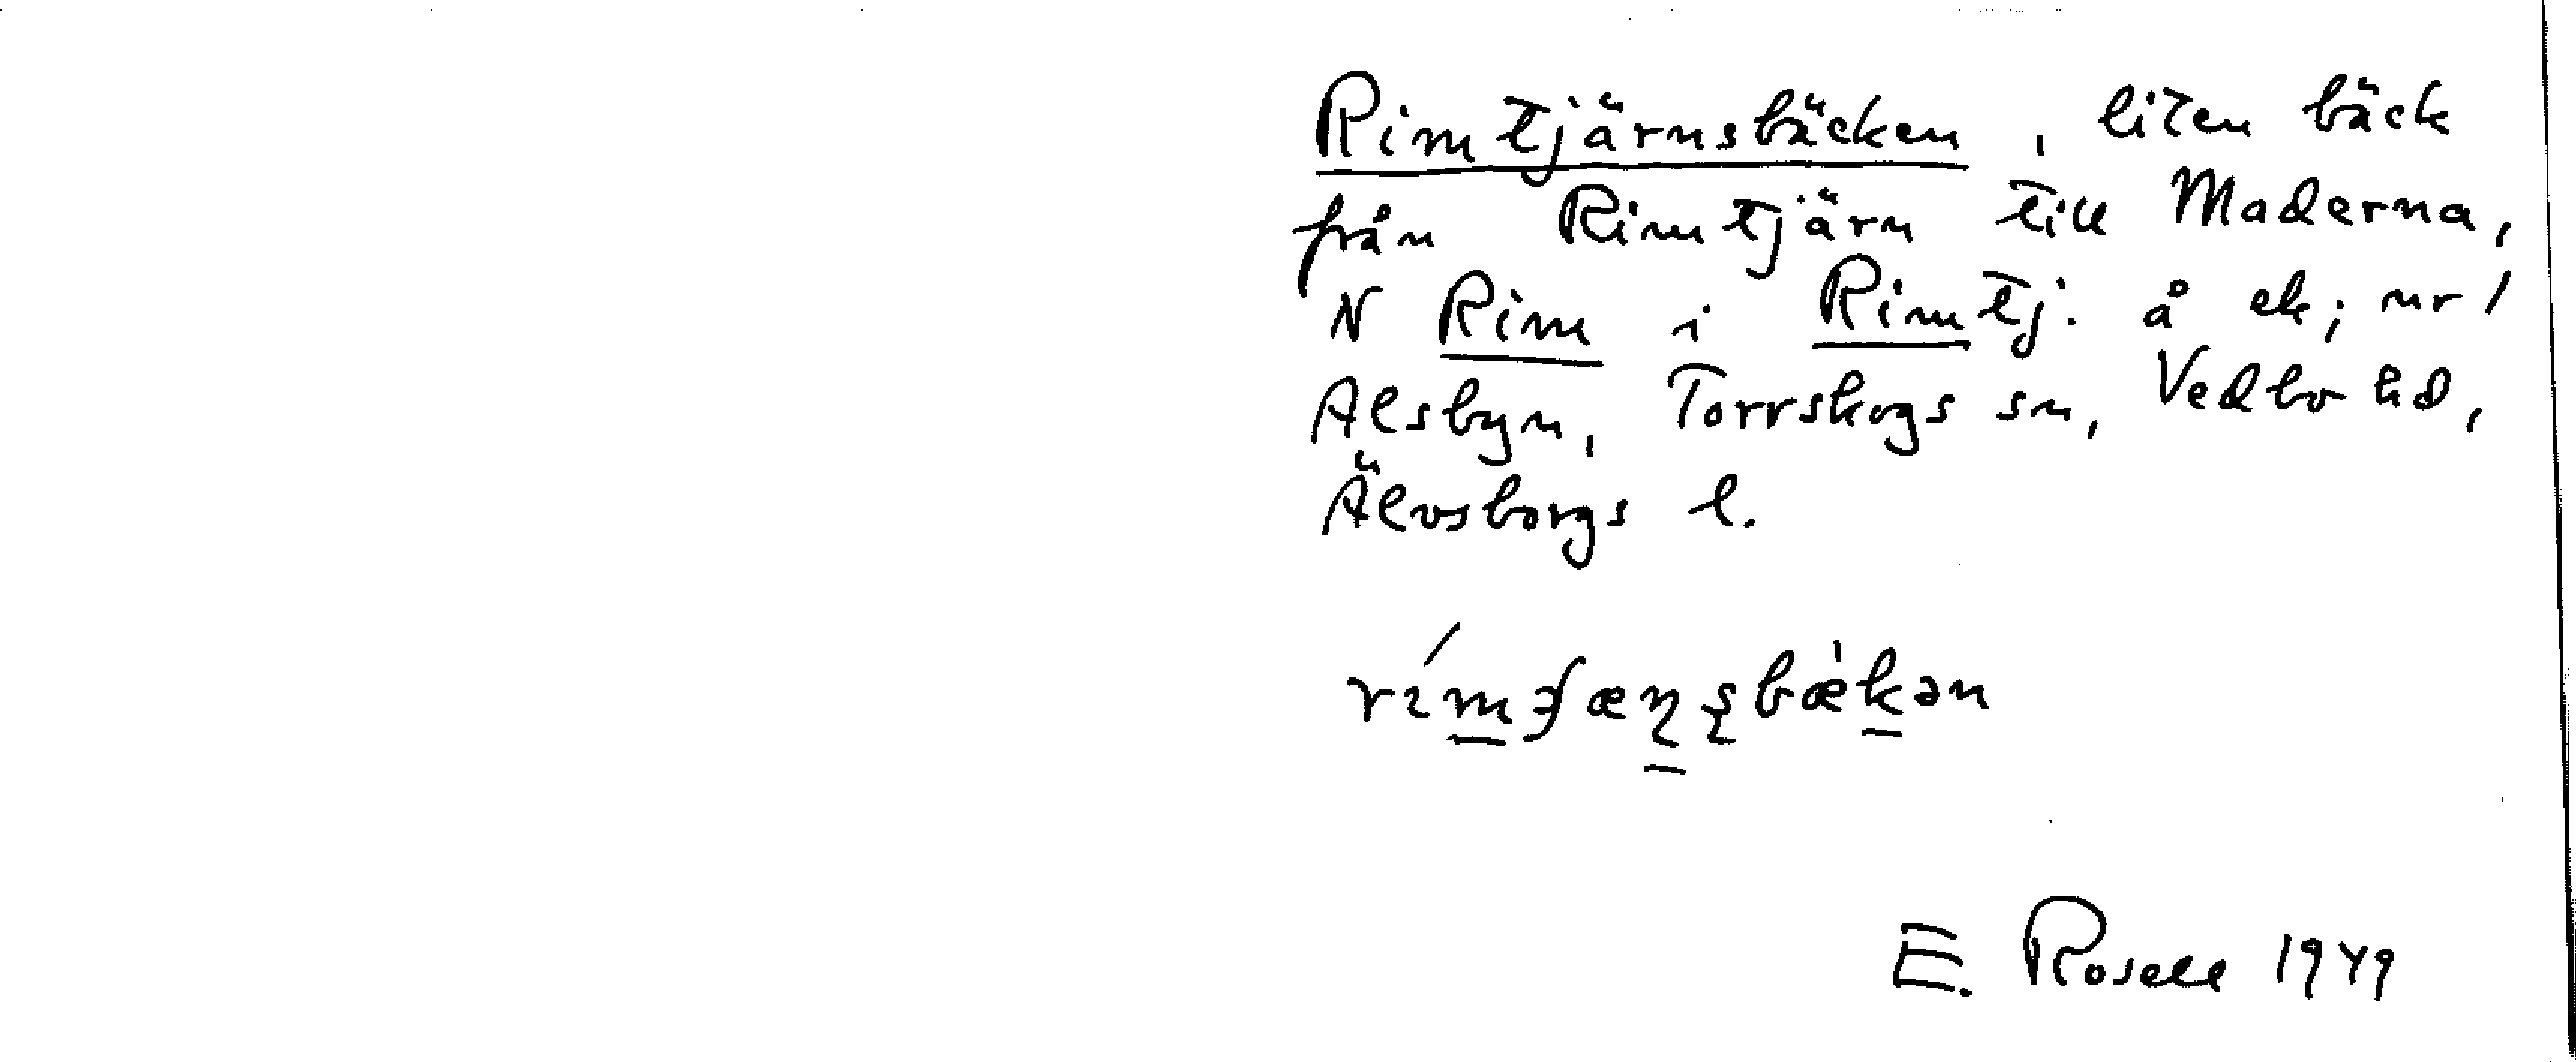 Rimtjärnsbäcken, liten bäck
från Rimtjärn till Maderna,
N Rim i Rimtj. å ek; nr 1
Alsbyn, Torrskogs sn, Vedbo hd,
Älvsborgs l.
E. Rosell 1949